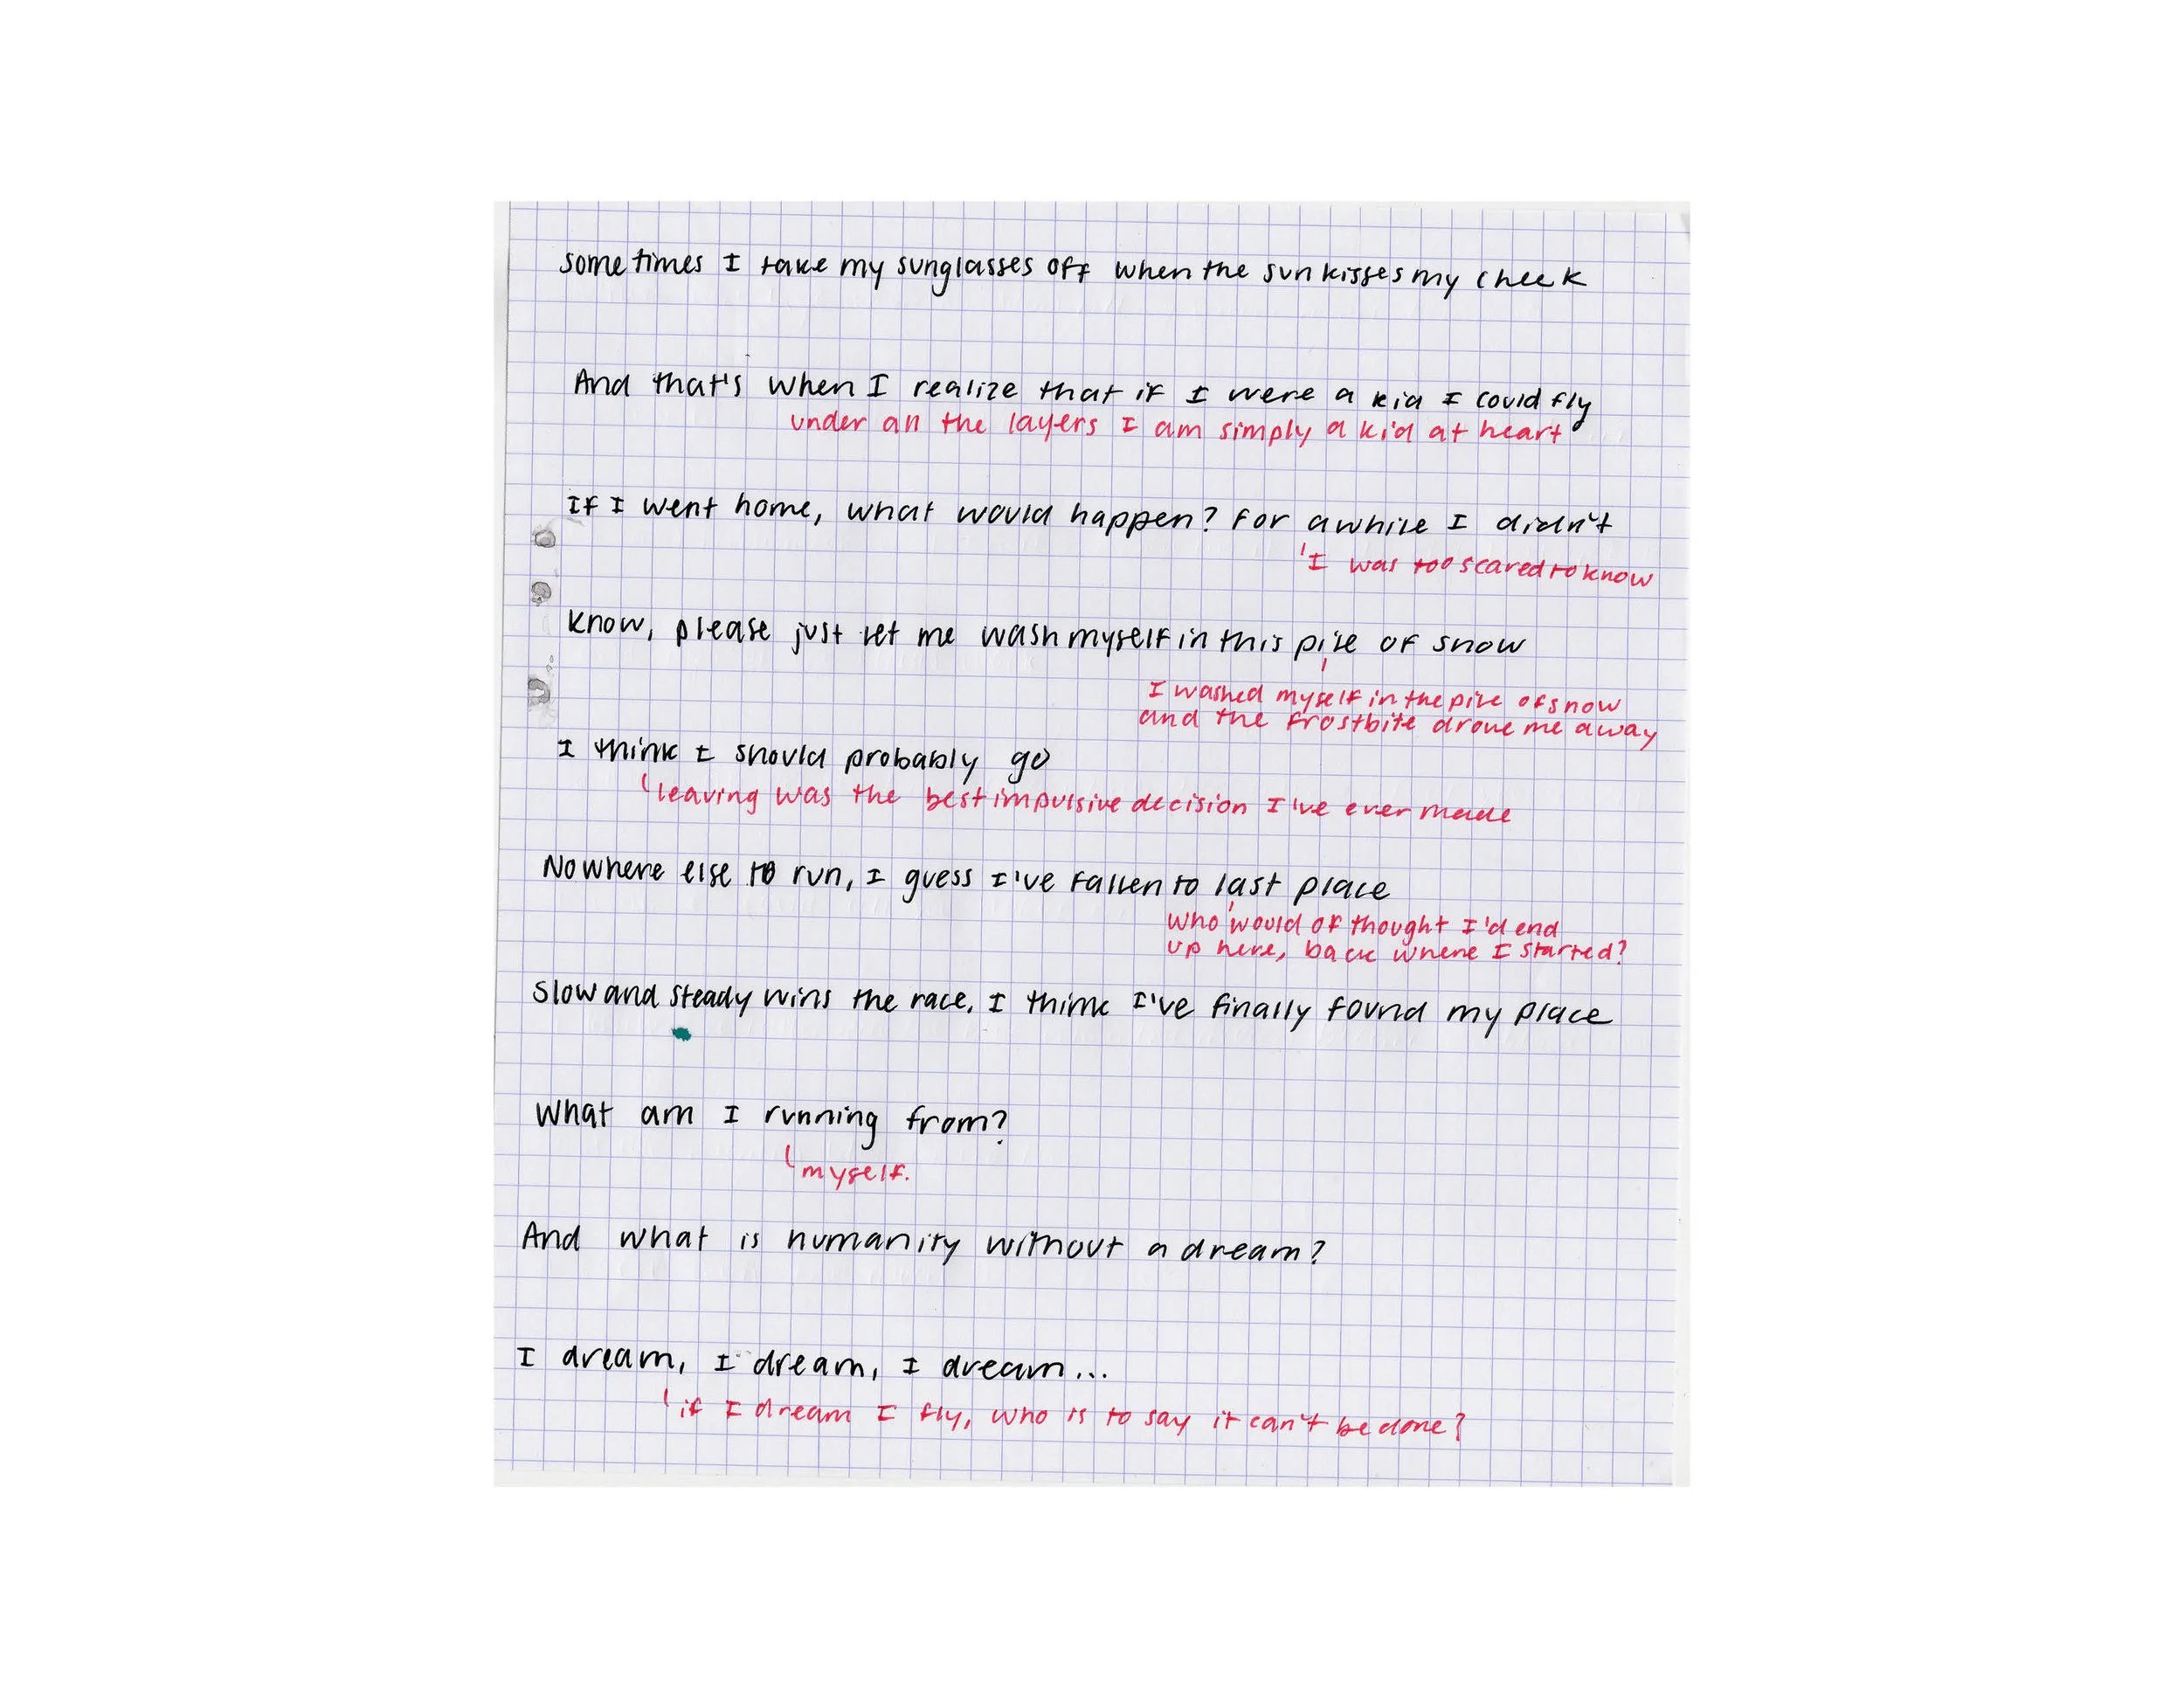 sometimes I take my sunglasses off when the sun kisses my cheek
And that's when I realize that if I were a kid I could fly
under all the layers I am simply a kid at heart
If I went home, what would happen? For awhile I didn't
I was too scared to know
know, please just let me wash myself in this pile of snow
I washed myself in the pile of snow
and the frostbite drove me away
I think I should probably go
leaving was the best impulsive decision I've ever made
Nowhere else to run, I guess I've fallen to last place
who would of thought I'd end
up here, back where I started?
Slow and steady wins the race. I think I've finally found my place
What am I running from?
myself.
And what is humanity without a dream?
I dream, I dream, I dream...
if I dream I fly, who is to say it can't be done?